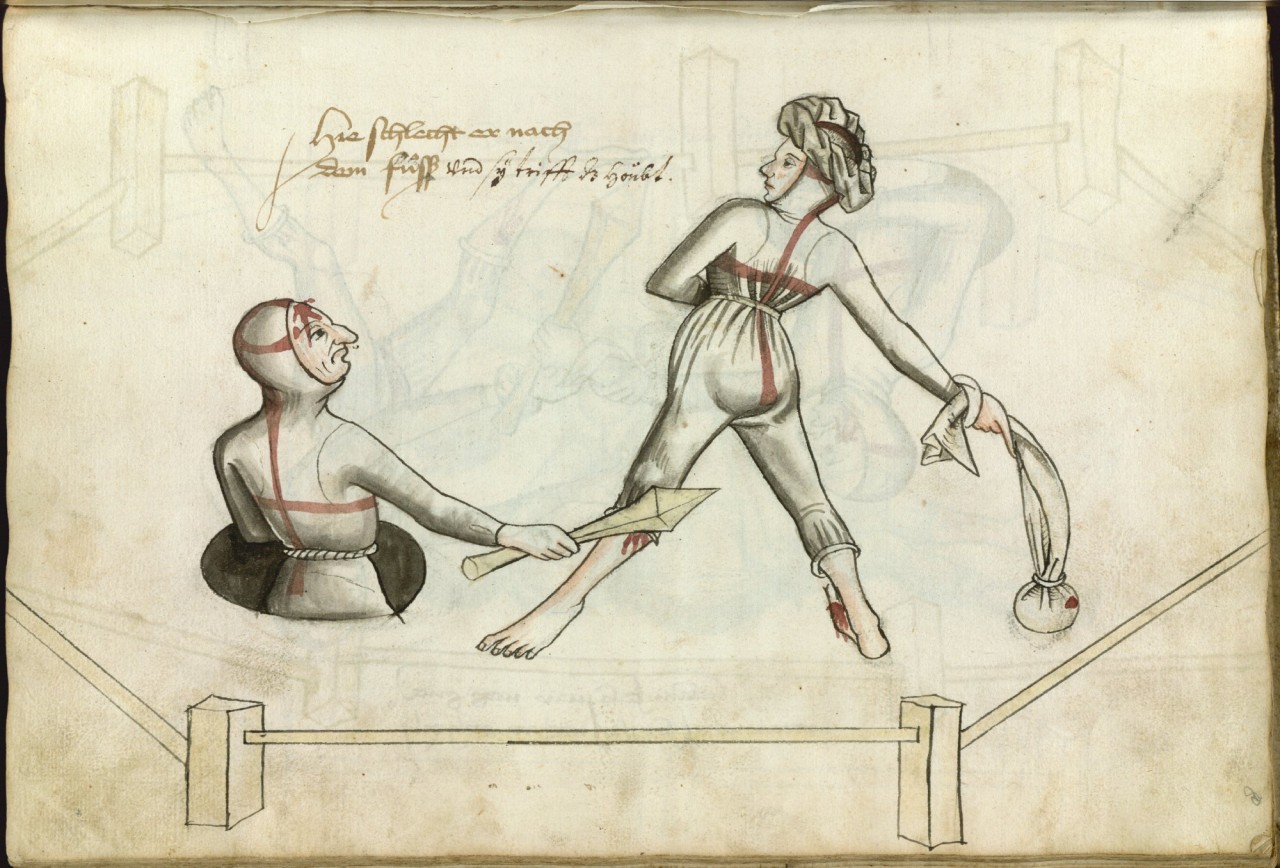 Hie schlecht er nach
dem fuͦß vnd sy trifft dz hoͧbt.